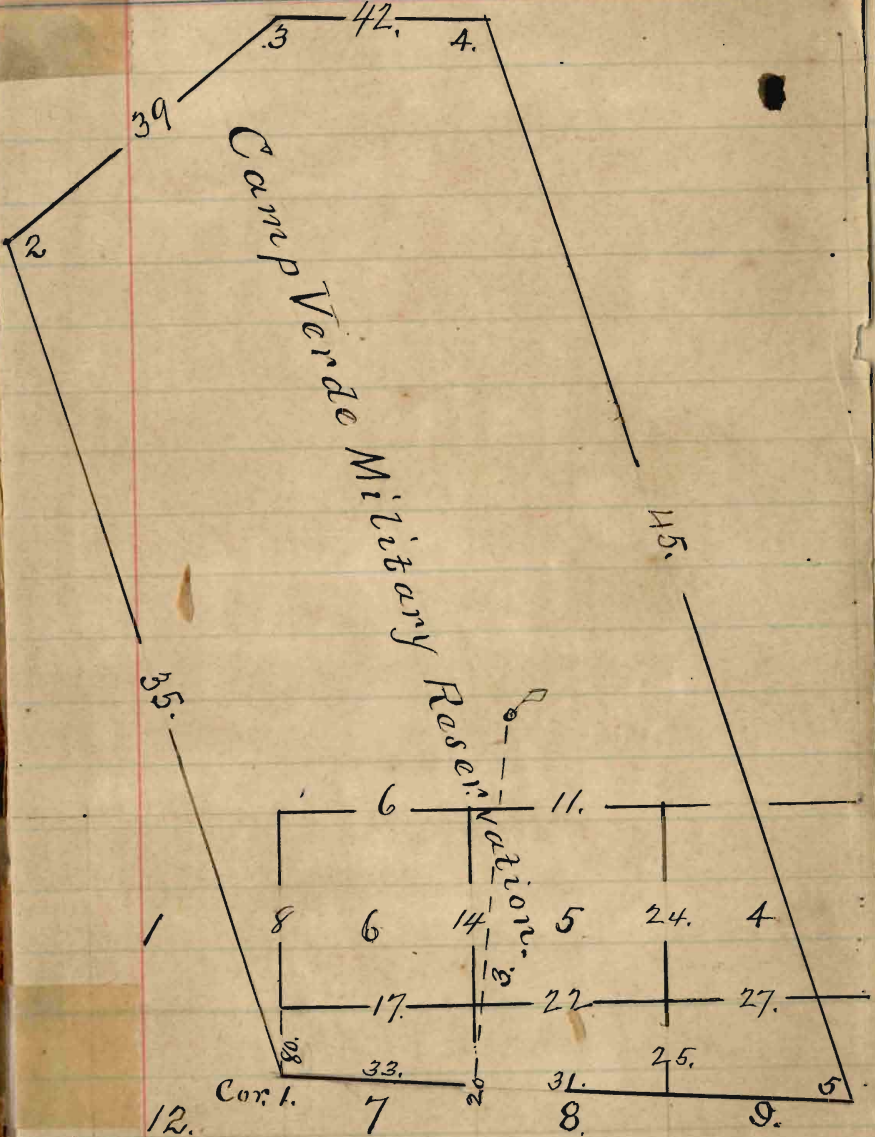 3 42. 4.
39
2
Camp Verde Military Reservation.
45.
35.
6 11.
1 8 6 14 5 24. 4
3.
17. 22 27.
98
33. 2 31. 25. 5
Cor. 1.
12. 7 8. 9.